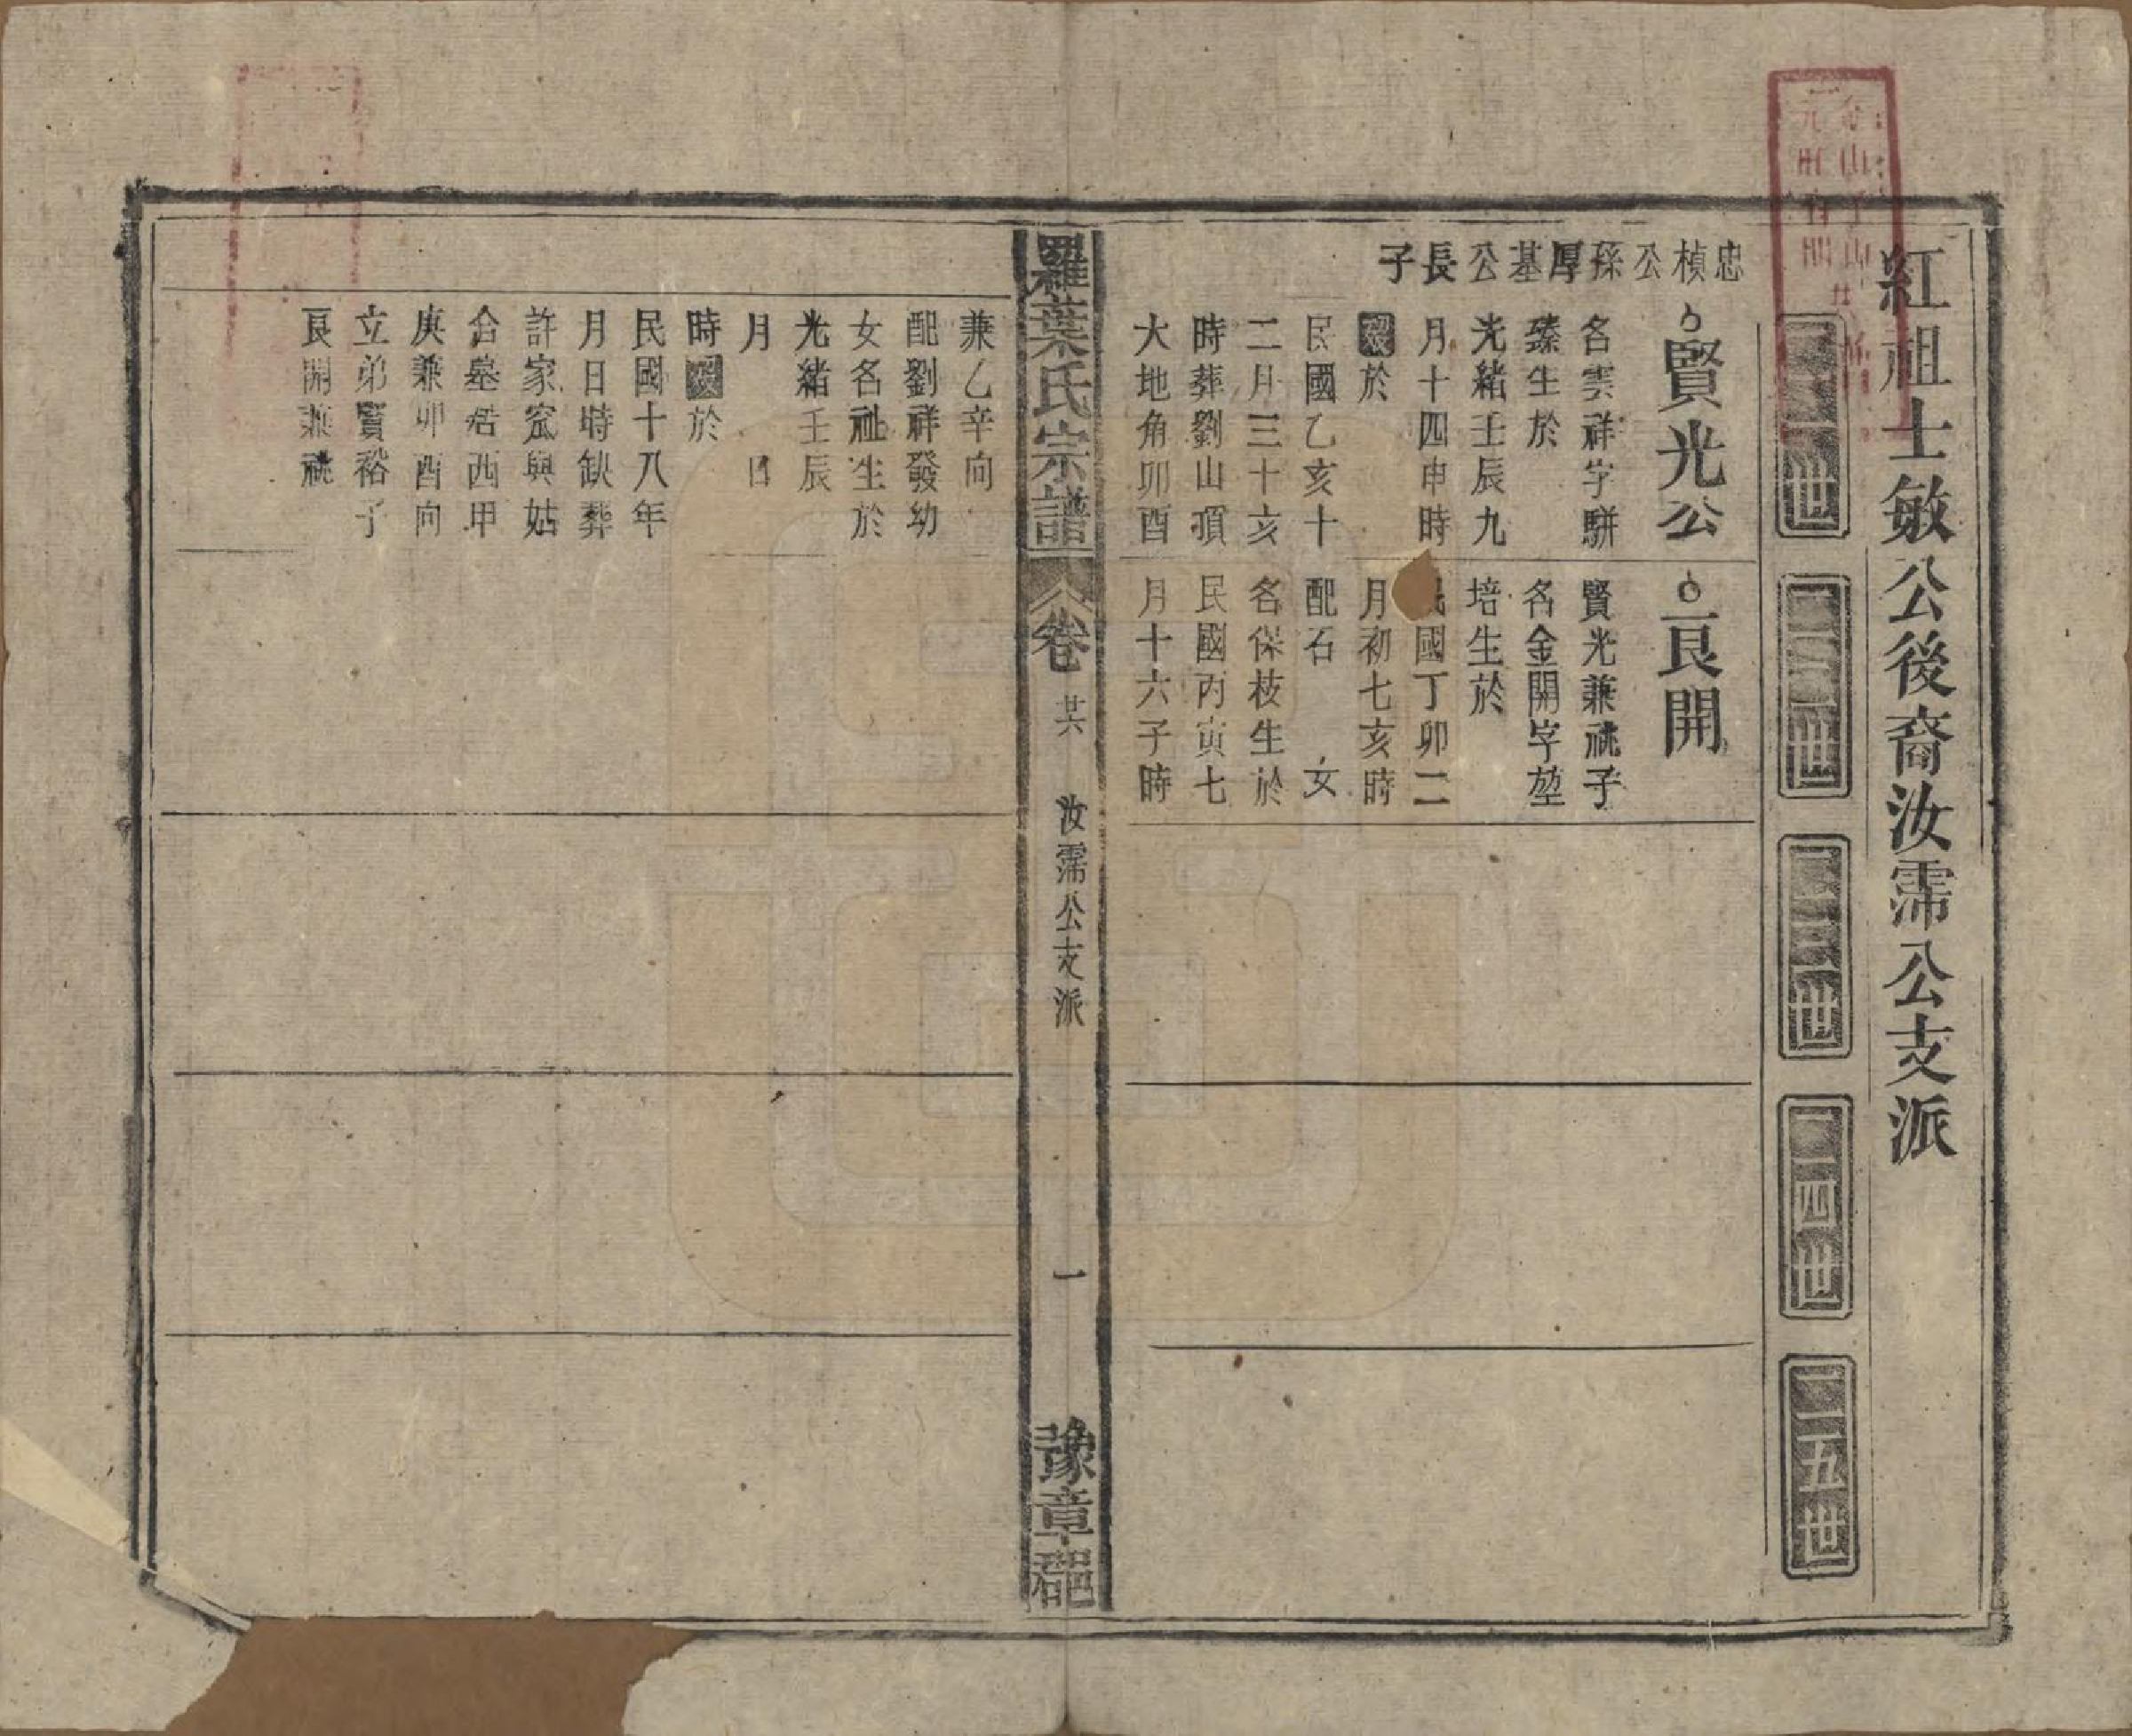 紅祖士敏公後裔汝霈公支派
二一世
二二世
二三世
二四世
二五世
忠楨公孫厚基公長子
賢光公
名雲祥字駢
臻生於
光緒壬辰九
月十四申時
歿於
民國乙亥十
二月三十亥
時葬劉山項
大地角卯酉
艮開
賢光兼祧子
名金開字堃
培生於
民國丁卯二
月初七亥時
配石 女
名保枝生於
民國丙寅七
月十六子時
羅葉氏宗譜
卷
廿六
汝霈公支派
一
豫章郡
兼乙辛向
配劉祥發幼
女名祉生於
光緒壬辰
月 日
時歿於
民國十八年
月日時缺葬
許家窊與姑
合墓居西甲
庚兼卯酉向
立弟賢裕子
艮開兼祧